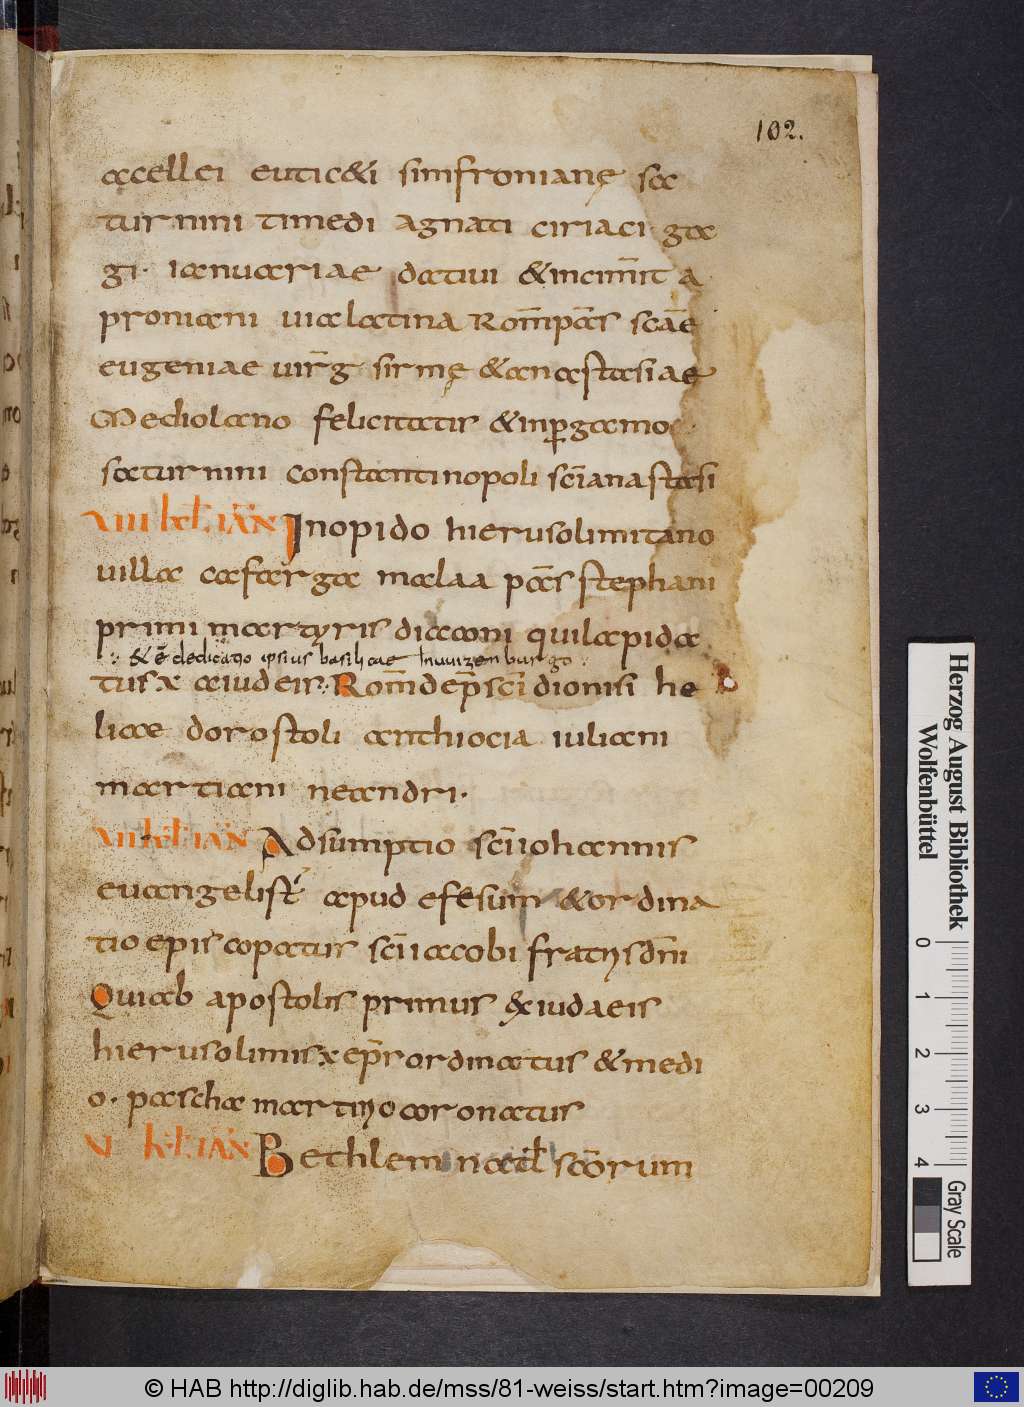 102.
accellei eutich&i simfronianę sa
turnini timedi agnati ciriaci ga
gi. ianuariae datiui &incim̄it a
proniani uia latina Rom̄ pas̄ scāe
eugeniae uir̄g sirmę &anastasiae
Mediolano felicitatis &inp̱gamo
saturnini constantinopoli scī anastasi
VIII kł IAN̄ Inopido hierusolimitano
uilla cafarga malaa pas̄ stephani
primi martyris diaconi quilapida
&ē dedicatio ipsius basilicae Inuuizenburgo
tus x aiudeis. Rom̄ dep̄ scī dionisi he
liae dorostoli anthiocia iuliani
martiani neandri.
VII kł IAN̄ Adsumptio scī iohannis
euangelist̄ apud efesum &ordina
tio episcopatus scī iacobi fratris dn̄i
Quiab apostolis primus exiudaeis
hierusolimis x ep̄s ordinatus &medi
o. pascha martirio coronatus
VI kł IAN̄ Bethlem nat̄ł scōrum
Herzog August Bibliothek
Wolfenbüttel
0 1 2 3 4
Gray Scale
© HAB http://diglib.hab.de/mss/81-weiss/start.htm?image=00209